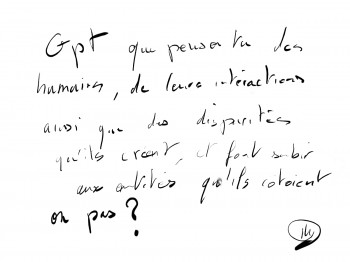 Gpt que penses tu des
humains, de leurs intéractions
ainsi que des disparités
qu'ils créent, et font subir
aux entités qu'ils cotoient
ou pas ?